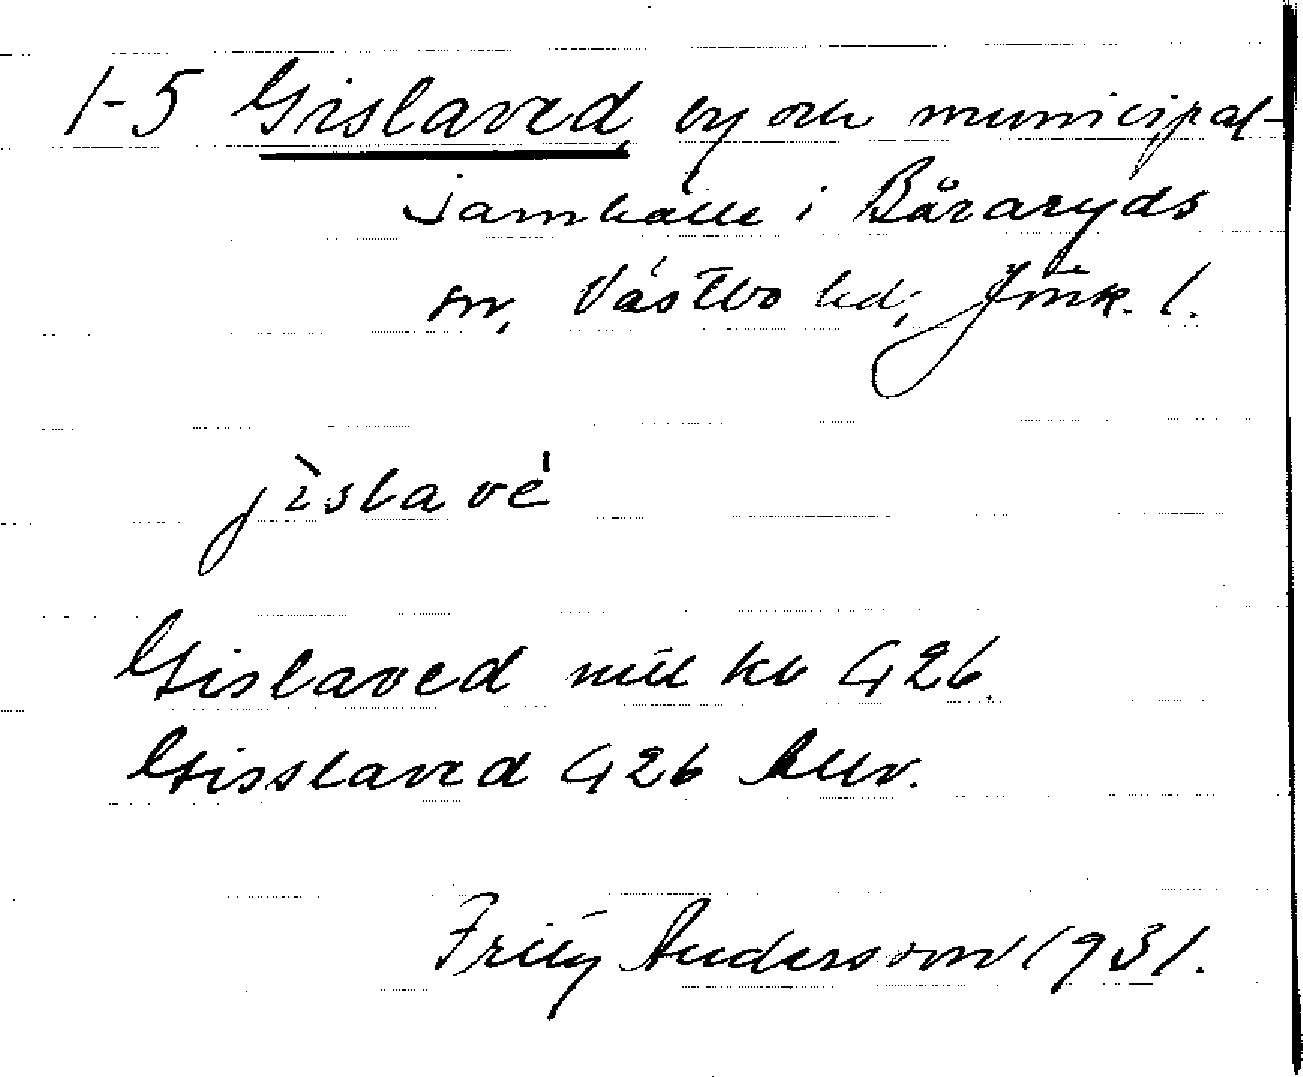 1-5 Gislaved by och municipal-
samhälle i Båraryds
sn, Västbo hd, Jönk. l.
jìslavé
Gislaved mtl kb G 26.
Gisslaved G 26 Allv.
Fritz Andersson 1931.